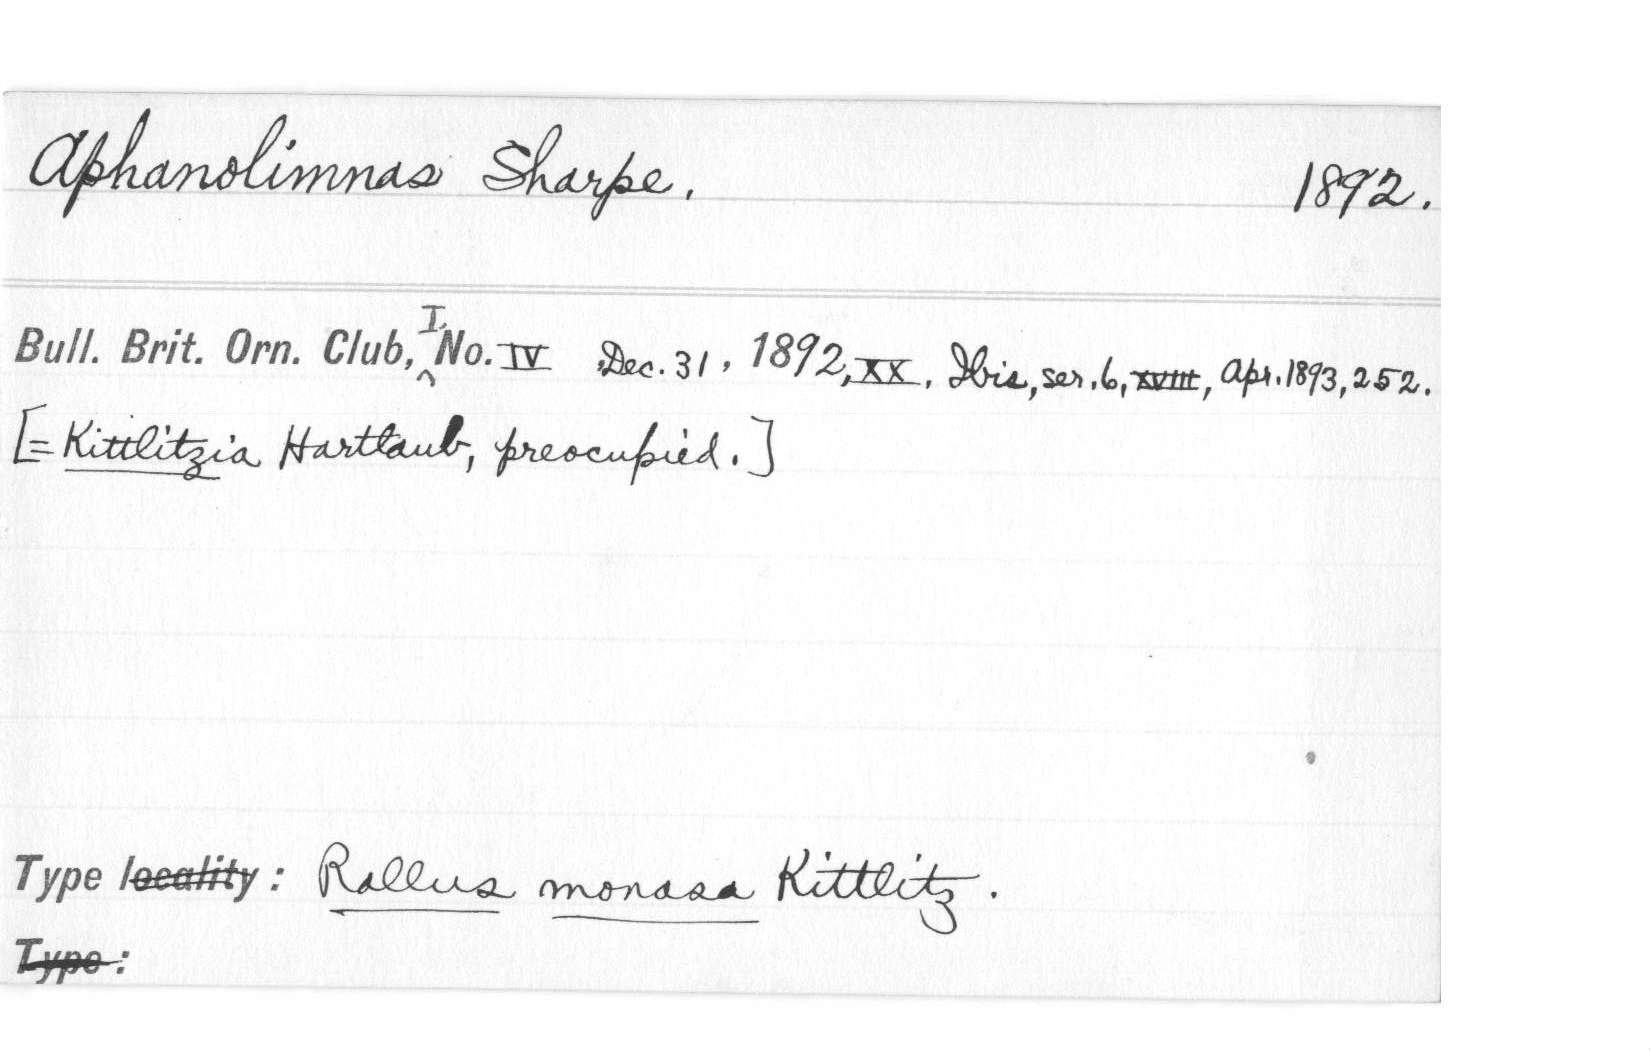 Aphanolimnas Sharpe. 1892.
Bull. Brit. Orn. Club, I, No. IV Dec. 31, 1892, XX. Ibis, ser. 6, XVIII, Apr. 1893, 252.
[= Kittlitzia Hartlaub, preocupied.]
Type locality: Rallus monasa Kittlitz.
Type: